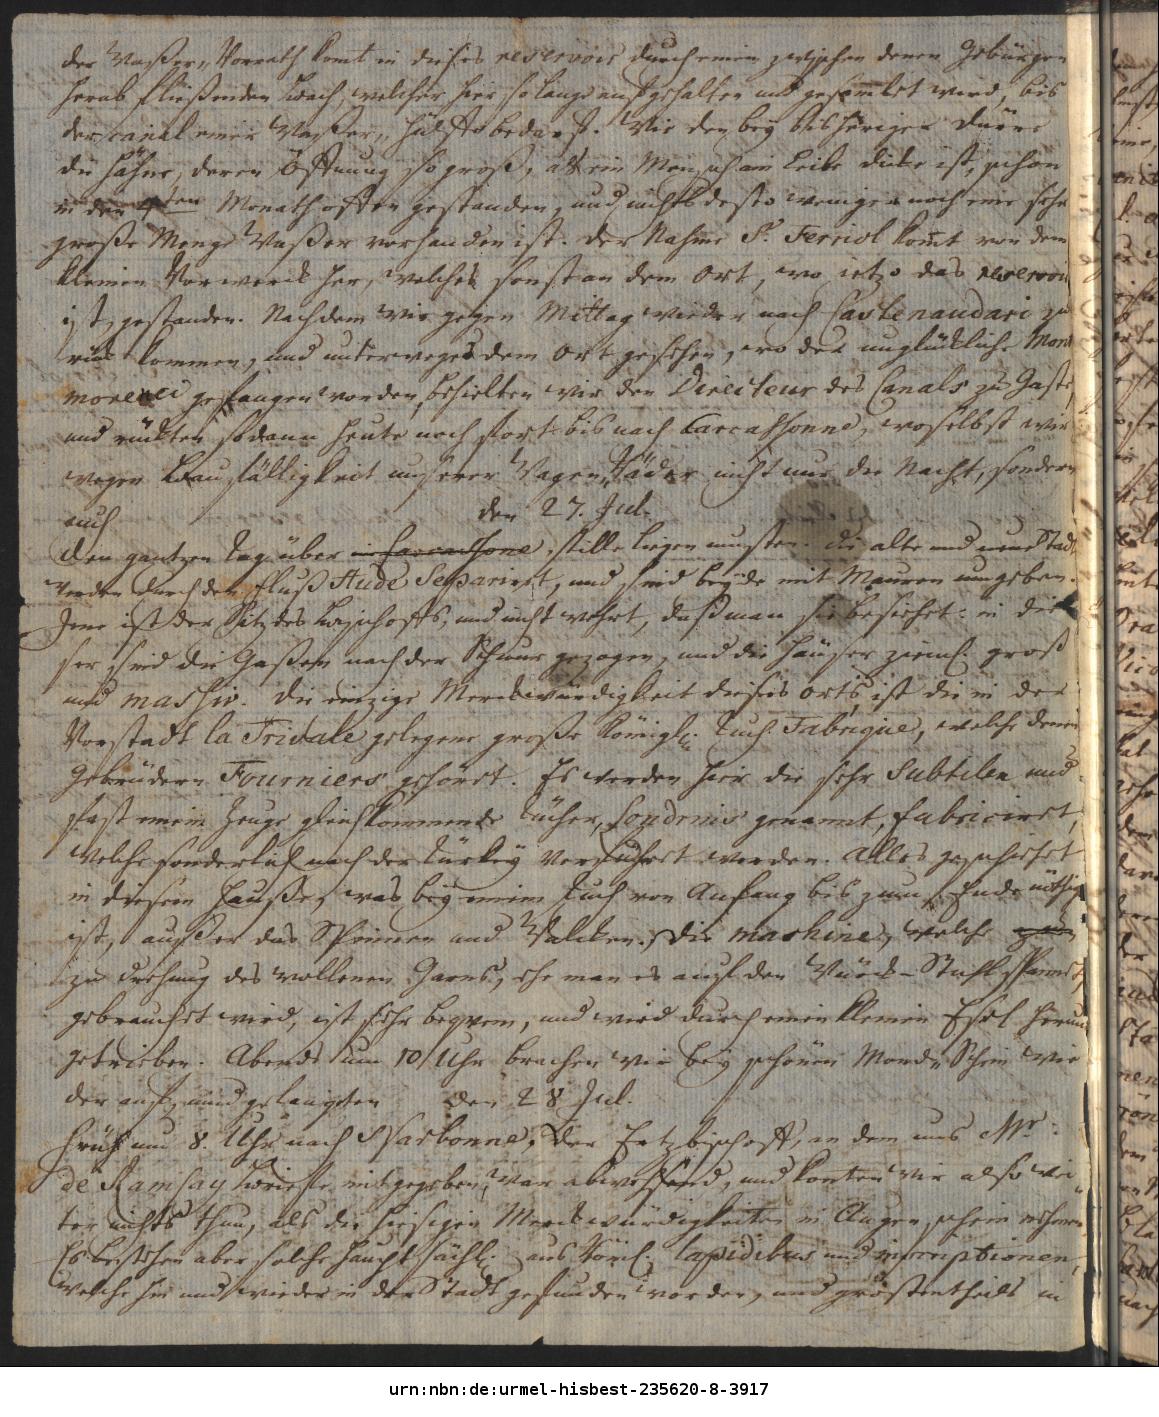 der Waßer-Vorrath komt in dieses reservoir durch einen zwischen denen Gebürgen
herab fließenden Bach, welcher hier so lange aufgehalten und gesamlet wird, bis
der canal einer Waßer-Hülffe bedarf. Wie den bey bisheriger Dürre
die Hähne, deren Öffnung so groß, als ein Mensch am Leibe dicke ist, schon
in den 4ten Monath offen gestanden, und nichts desto weniger noch eine sehr
große Menge Waßer vorhanden ist. Der Nahme S. Ferriol komt von dem
kleinen Vorwerck her, welches sonst an dem Ort, wo ietzo das reservoir
ist, gestanden. Nachdem wir gegen Mittag wieder nach Castelnaudari zu
rück kommen, und unterweges den Ort gesehen, wo der unglückliche Mont
morenci gefangen worden, behielten wir den Directeur des Canals zu Gaste,
und rückten sodann heute noch fort bis nach Carcassonne, woselbst wir
wegen Baufälligkeit unserer Wagen-Räder nicht nur die Nacht, sondern
auch den 27. Jul.
den gantzen Tag über in Carcassone stille liegen musten. Die alte und neue Stadt
werden durch den Fluß Aude separiret, und sind beyde mit Mauren umgeben.
Jene ist der Sitz des Bischoffs, und nicht wehrt, daß man sie besiehet: in die
ser sind die Gaßen nach der Schnur gezogen, und die Häuser zieml. groß
und massiv. Die einzige Merckwürdigkeit dieses Orts, ist die in der
Vorstadt la Trivale gelegene große Königl. Tuch-Fabrique, welche denen
Gebrüdern Fourniers gehöret. Es werden hier die sehr subtilen und
fast einem Zeuge gleichkommende Tücher, Londrins genannt, fabriciret,
welche sonderlich nach der Türkey verführet werden. Alles geschiehet
in diesem Hauße, was bey einem Tuch von Anfang bis zum Ende nöthig
ist, außer das Spinnen und Walcken. Die machine, welche
zu Drehung des wollenen Garns, ehe man es auf den Würck-Stuhl spannet,
gebrauchet wird, ist sehr beqvem, und wird durch einen kleinen Esel herum
getrieben. Abends um 10 Uhr brachen wir bey schönen Mond-Schein wie
der auf, und gelangten den 28 Jul.
früh um 8 Uhr nach Narbonne. Der Ertzbischoff, an den uns Mr.
de Ramsay Briefe mitgegeben, war abwesend, und konten wir also wei
ter nichts thun, als die hiesigen Merckwürdigkeiten in Augenschein nehmen.
Es bestehen aber solche hauptsächl. aus Röm. lapidibus und inscriptionen,
welche hin und wieder in der Stadt gefunden worden, und gröstentheils in
urn:nbn:de:urmel-hisbest-235620-8-3917